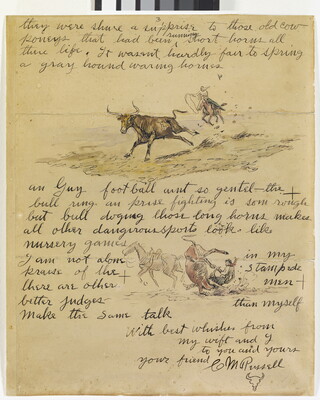 they were shure a suprise to those old cow
poneys that had been running short horns all
there life. It wasent hardly fair to spring
a gray hound waring hornes
an Guy foot ball aint so gentel the
bull ring an prise fighting is som rough
but bull doging those long horns makes
all other dangirous sports look like
nursery games
I am not alone in my
praise of the Stampede
there are other men
better judges than myself
make the same talk
With best whishes from
my wift and I
to you and yours
your friend CM Russell